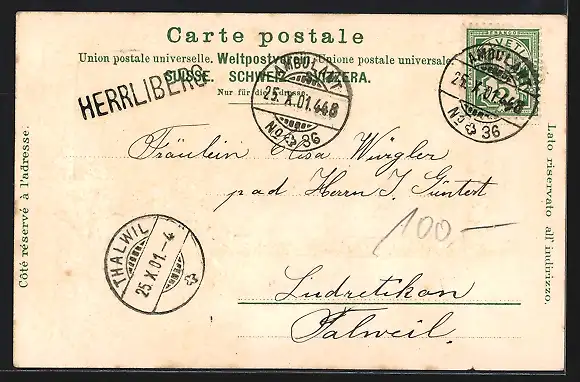 Carte postale
Union postale universelle. Weltpostverein. Unione postale universale.
SUISSE. SCHWEIZ. SVIZZERA.
Nur für die Adresse.
HERRLIBERG
AMBULANT
25.X.01.448
No 36
HELVETIA
AMBULANT
25.X.01.448
No 36
Côté réservé à l'adresse.
Lato riservato all' indirizzo.
Fräulein Rosa Würgler
pad Herrn J. Güntert
100,—
THALWIL
25.X.01.-4
Ludretikon
Talweil.